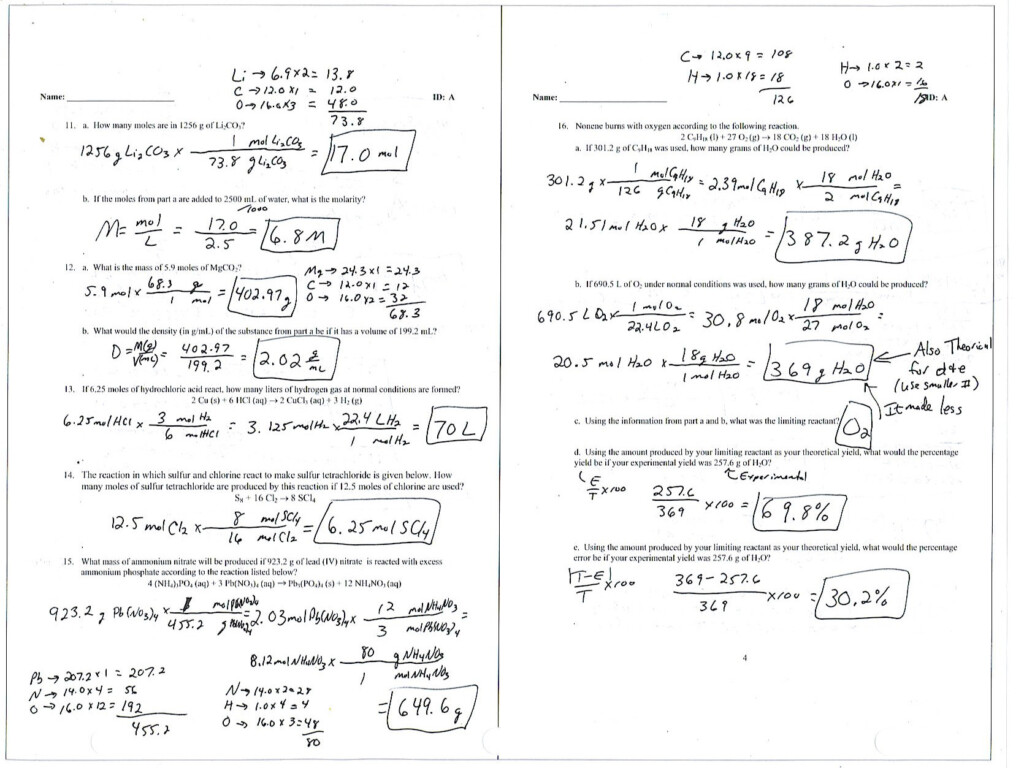 Li → 6.9 x 2 = 13.8
C → 12.0 x 1 = 12.0
O → 16.0 x 3 = 48.0
73.8
Name: ID: A
11. a. How many moles are in 1256 g of Li₂CO₃?
1256 g Li₂CO₃ x 1 mol Li₂CO₃ / 73.8 g Li₂CO₃ = 17.0 mol
b. If the moles from part a are added to 2500 mL of water, what is the molarity?
1000
M = mol / L = 17.0 / 2.5 = 6.8 M
12. a. What is the mass of 5.9 moles of MgCO₂?
Mg → 24.3 x 1 = 24.3
C → 12.0 x 1 = 12
O → 16.0 x 2 = 32
68.3
5.9 mol x 68.3 g / 1 mol = 402.97 g
b. What would the density (in g/mL) of the substance from part a be if it has a volume of 199.2 mL?
D = M(g) / V(mL) = 402.97 / 199.2 = 2.02 g/mL
13. If 6.25 moles of hydrochloric acid react, how many liters of hydrogen gas at normal conditions are formed?
2 Cu (s) + 6 HCl (aq) → 2 CuCl₃ (aq) + 3 H₂ (g)
6.25 mol HCl x 3 mol H₂ / 6 mol HCl = 3.125 mol H₂ x 22.4 L H₂ / 1 mol H₂ = 70 L
14. The reaction in which sulfur and chlorine react to make sulfur tetrachloride is given below. How
many moles of sulfur tetrachloride are produced by this reaction if 12.5 moles of chlorine are used?
S₈ + 16 Cl₂ → 8 SCl₄
12.5 mol Cl₂ x 8 mol SCl₄ / 16 mol Cl₂ = 6.25 mol SCl₄
15. What mass of ammonium nitrate will be produced if 923.2 g of lead (IV) nitrate is reacted with excess
ammonium phosphate according to the reaction listed below?
4 (NH₄)₃PO₄ (aq) + 3 Pb(NO₃)₄ (aq) → Pb₃(PO₄)₄ (s) + 12 NH₄NO₃ (aq)
923.2 g Pb(NO₃)₄ x 1 mol Pb(NO₃)₄ / 455.2 g Pb(NO₃)₄ = 2.03 mol Pb(NO₃)₄ x 12 mol NH₄NO₃ / 3 mol Pb(NO₃)₄ =
8.12 mol NH₄NO₃ x 80 g NH₄NO₃ / 1 mol NH₄NO₃
= 649.6 g
Pb → 207.2 x 1 = 207.2
N → 14.0 x 4 = 56
O → 16.0 x 12 = 192
455.2
N → 14.0 x 2 = 28
H → 1.0 x 4 = 4
O → 16.0 x 3 = 48
80
C → 12.0 x 9 = 108
H → 1.0 x 18 = 18
126
H → 1.0 x 2 = 2
O → 16.0 x 1 = 16
18
Name: ID: A
16. Nonene burns with oxygen according to the following reaction.
2 C₉H₁₈ (l) + 27 O₂ (g) → 18 CO₂ (g) + 18 H₂O (l)
a. If 301.2 g of C₉H₁₈ was used, how many grams of H₂O could be produced?
301.2 g x 1 mol C₉H₁₈ / 126 g C₉H₁₈ = 2.39 mol C₉H₁₈ x 18 mol H₂O / 2 mol C₉H₁₈ =
21.51 mol H₂O x 18 g H₂O / 1 mol H₂O = 387.2 g H₂O
b. If 690.5 L of O₂ under normal conditions was used, how many grams of H₂O could be produced?
690.5 L O₂ x 1 mol O₂ / 22.4 L O₂ = 30.8 mol O₂ x 18 mol H₂O / 27 mol O₂ =
20.5 mol H₂O x 18 g H₂O / 1 mol H₂O = 369 g H₂O
Also Theorical
for d+e
(use smaller #)
It made less
c. Using the information from part a and b, what was the limiting reactant?
O₂
d. Using the amount produced by your limiting reactant as your theoretical yield, what would the percentage
yield be if your experimental yield was 257.6 g of H₂O?
Experimental
E / T x 100 257.6 / 369 x 100 = 69.8%
e. Using the amount produced by your limiting reactant as your theoretical yield, what would the percentage
error be if your experimental yield was 257.6 g of H₂O?
|T-E| / T x 100 369 - 257.6 / 369 x 100 = 30.2%
4